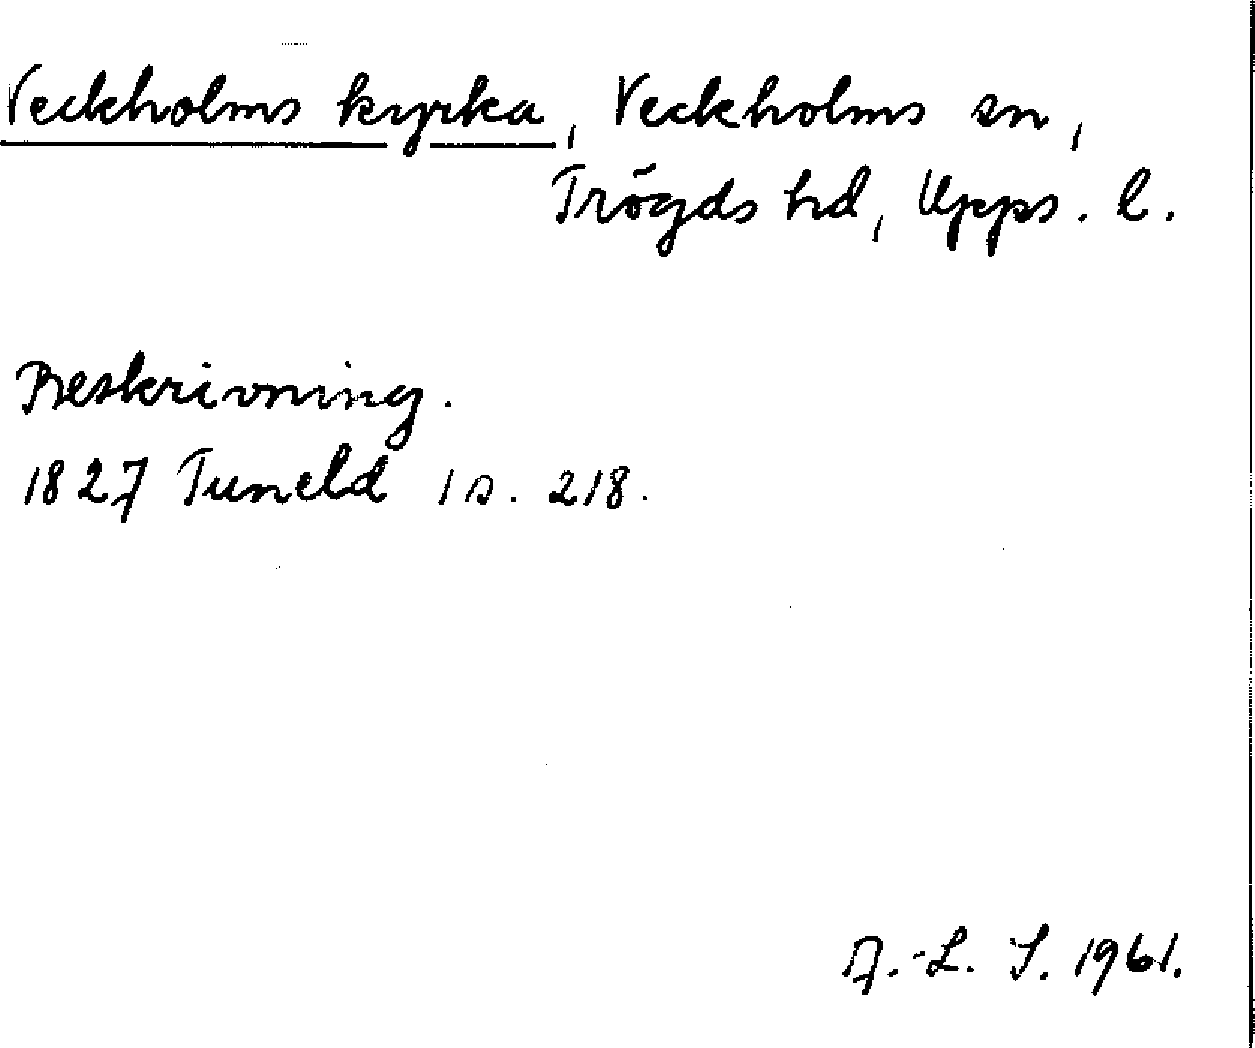 Veckholms kyrka, Veckholms sn,
Trögds hd, Upps. l.
Beskrivning.
1827 Tuneld I s. 218.
A.-L. S. 1961.